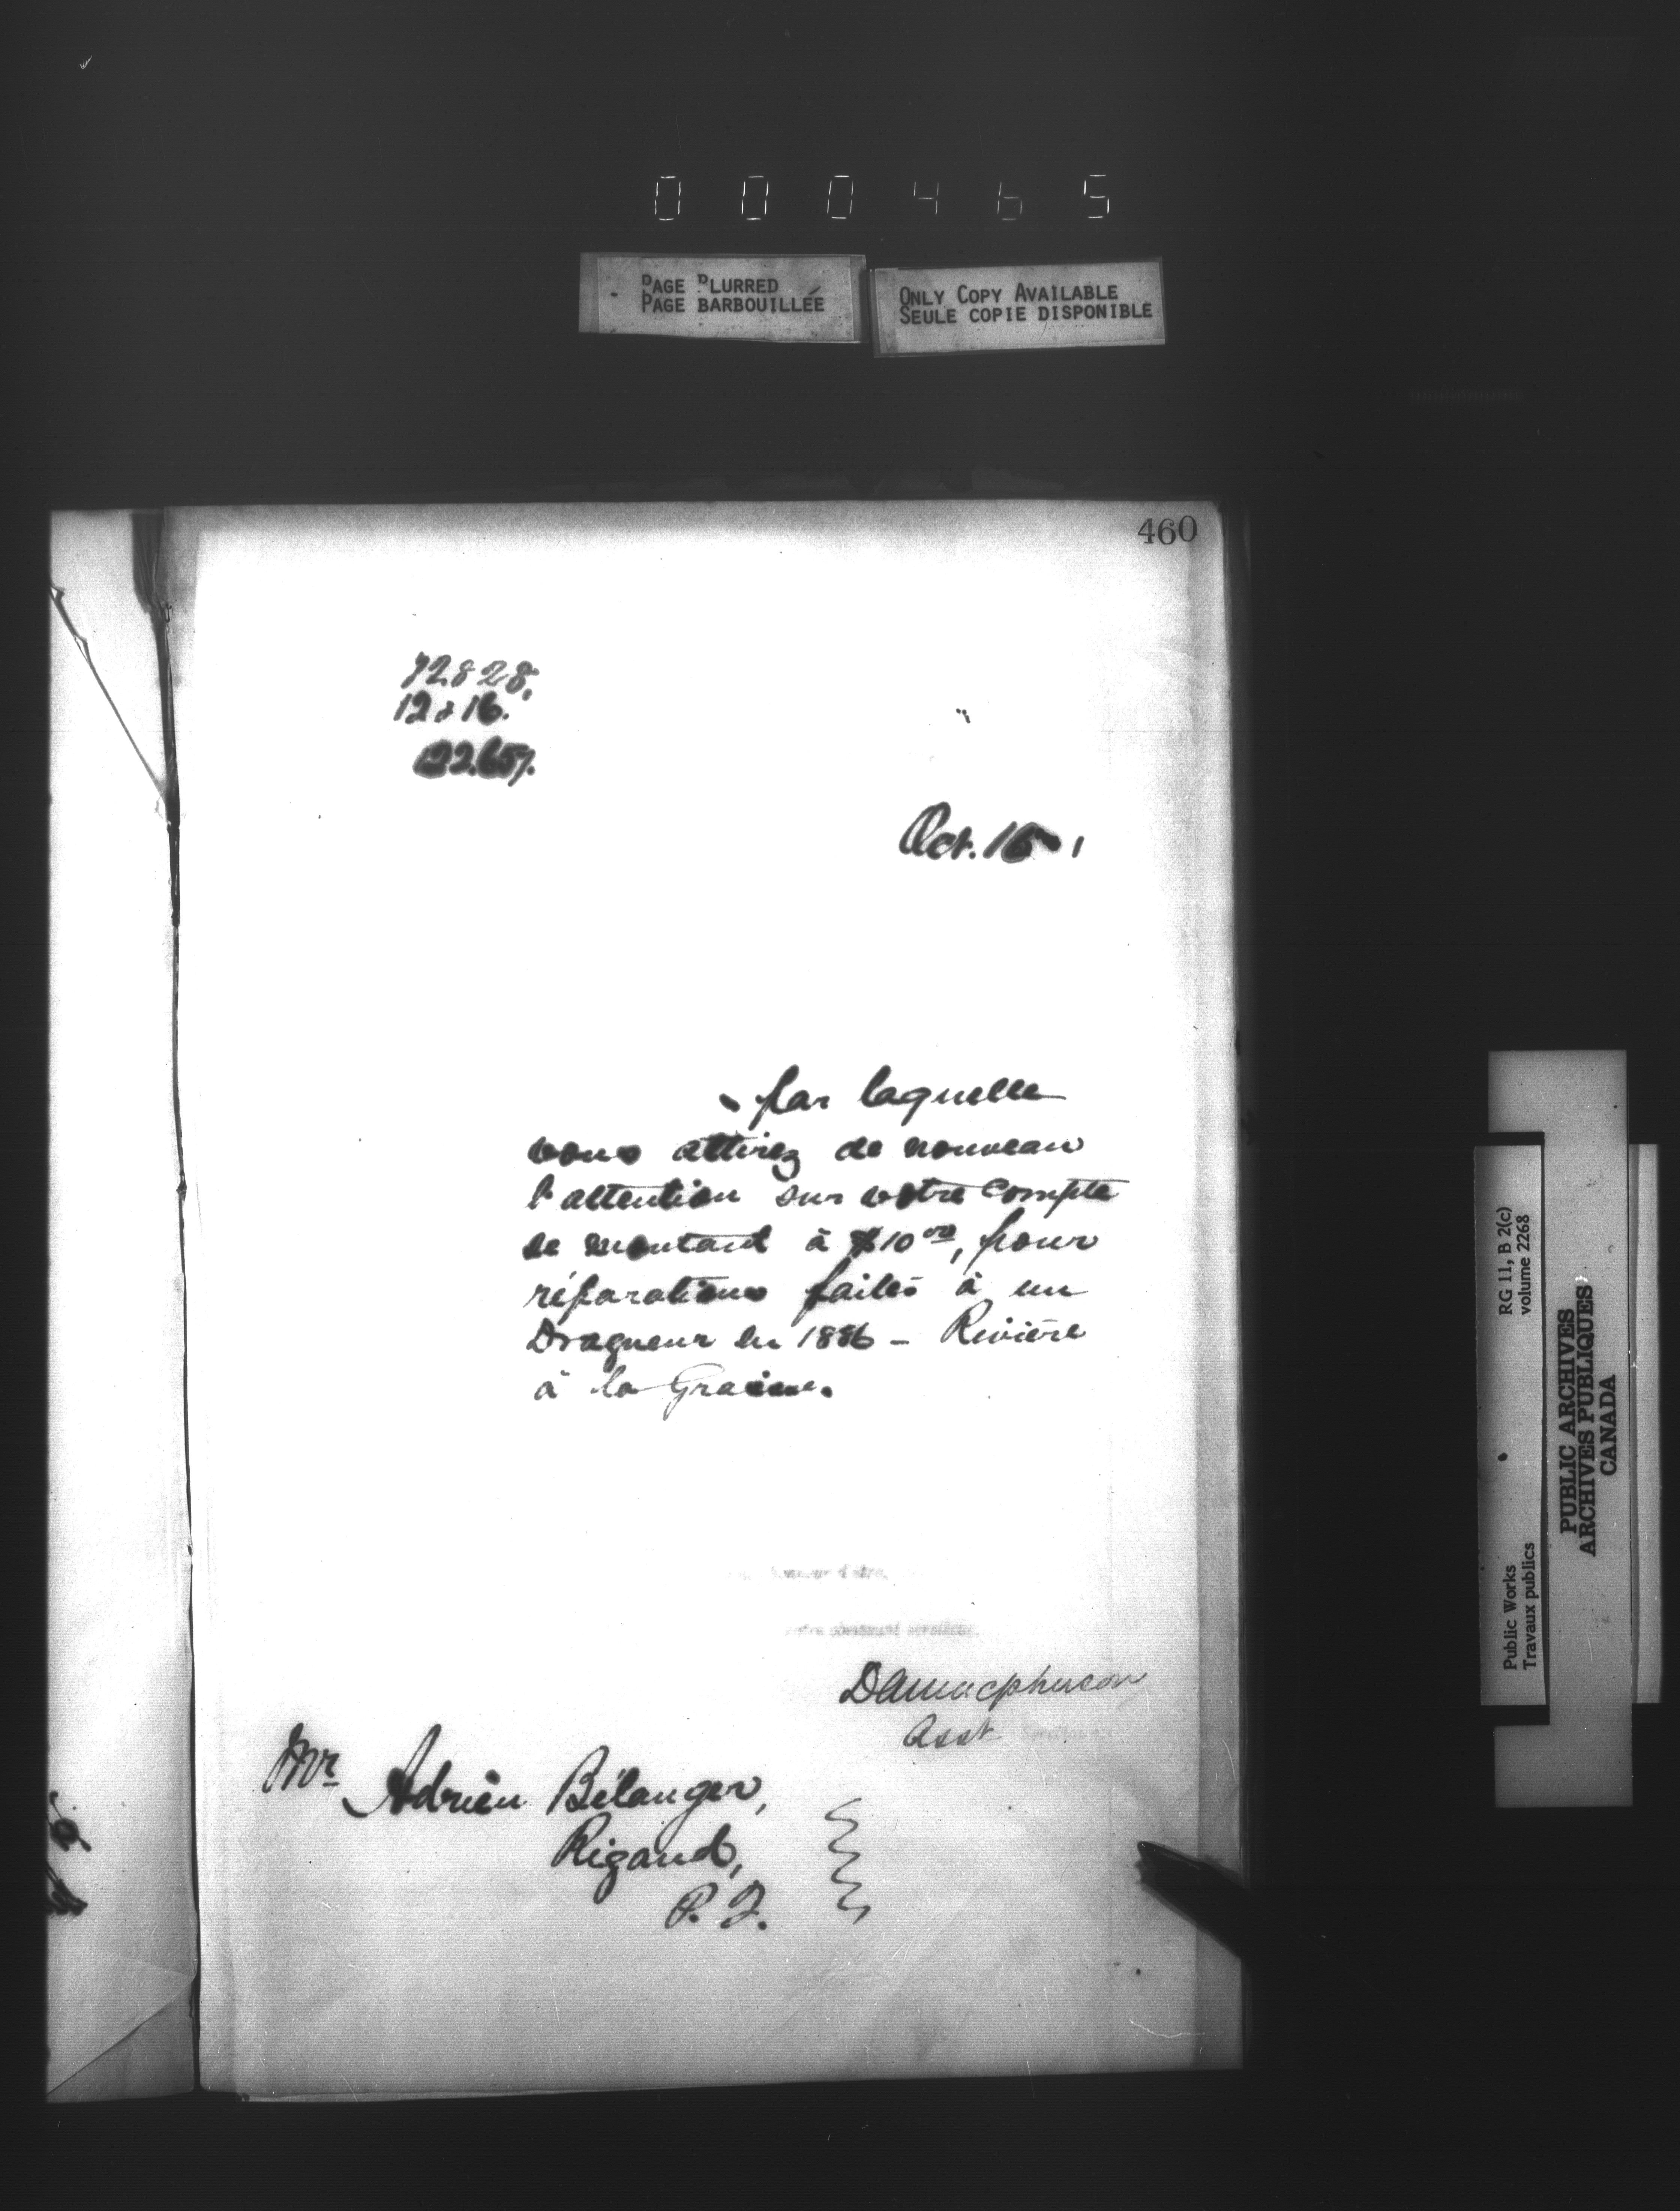 000465
PAGE BLURRED
PAGE BARBOUILLÉE
ONLY COPY AVAILABLE
SEULE COPIE DISPONIBLE
460
72828.
122657.
Oct. 15
par laquelle
vous attirez de nouveau
l'attention sur votre compte
se montant à $10 00, pour
réparations faites à un
Dragueur en 1886 - Rivière
à la Graisse.
honneur d'etre,
obeissant serviteur,
Asst
Mr Adrien Bélanger,
Rigaud,
P. Q.
Public Works
Travaux publics
RG 11, B 2(c)
volume 2268
PUBLIC ARCHIVES
ARCHIVES PUBLIQUES
CANADA